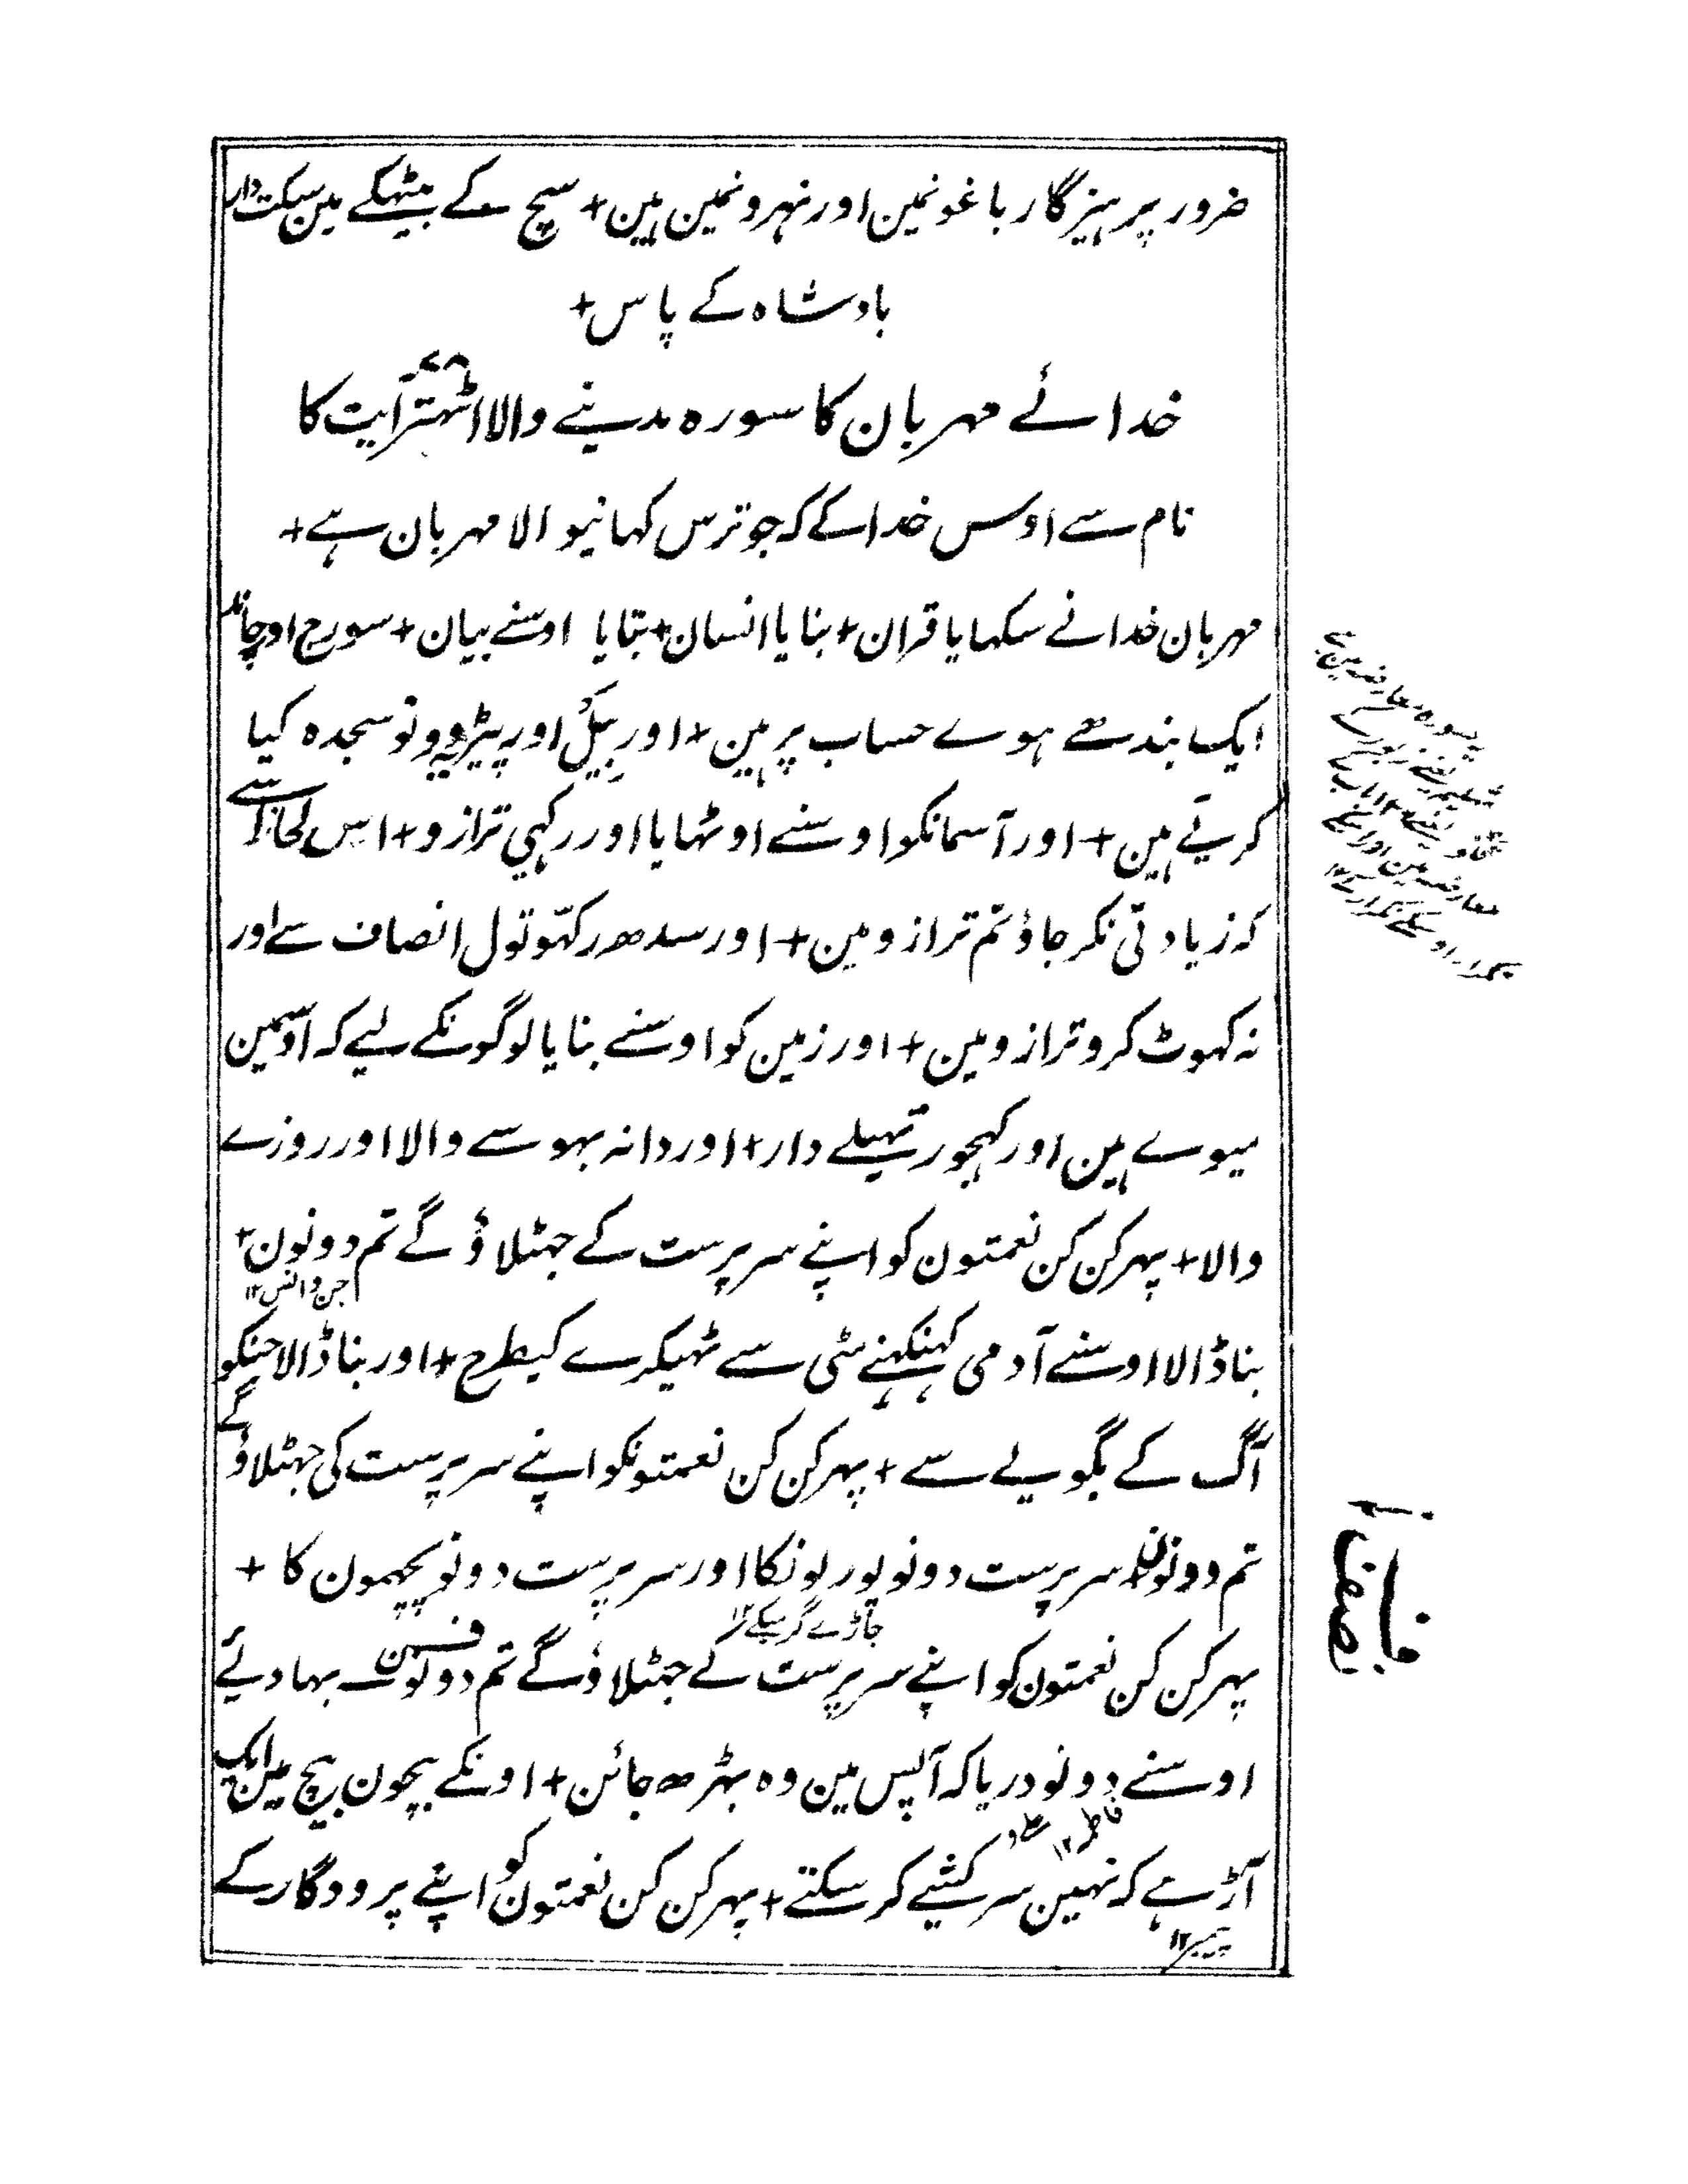 ضرور پرہیزگار باغونمین اور نہرونمین ہین + سچ کے بیٹہکے مین سکت دار
بادشاہ کے پاس +
خدائے مہربان کا سورہ مدینے والا اٹہتر آیت کا
نام سے اوس خدا کے کہ جو ترس کہانیوالا مہربان ہے +
مہربان خدا نے سکہایا قران + بنایا انسان + بتایا اوسنے بیان + سورج اور چاند
ایک بندھے ہوے حساب پر ہین + اور بیل اور پیڑ دونو سجدہ کیا
کرتے ہین + اور آسمانکو اوسنے اوٹہایا اور رکہی ترازو + اس لحاظ سے
کہ زیادتی نکر جاؤ تم ترازو مین + اور سدھ رکہو تول انصاف سے اور
نہ کہوٹ کرو ترازو مین + اور زمین کو اوسنے بنایا لوگونکے لیے کہ اوسمین
میوے ہین اور کہجور تہیلے دار + اور دانہ بہوسے والا اور روزے
والا + پہر کن کن نعمتون کو اپنے سرپرست کے جہٹلاؤ گے تم دونون +
جن و انس ۱۲
بنا ڈالا اوسنے آدمی کہنکہنے مٹی سے ٹہیکرے کیطرح + اور بنا ڈالا جنکو
آگ کے بگولے سے + پہر کن کن نعمتونکو اپنے سرپرست کی جہٹلاؤ گے
تم دونون + سرپرست دونو پوربونکا اور سرپرست دونو پچہمون کا +
جاڑے گرمیکے ۱۲
پہر کن کن نعمتون کو اپنے سرپرست کے جہٹلاؤ گے تم دونون بہا دئے
اوسنے دونو دریا کہ آپس مین وہ بہڑھ جائن + اونکے بیچون بیچ مین ایک
آڑ ہے کہ نہین سرکشیے کر سکتے + پہر کن کن نعمتون کو اپنے پرودگار کے